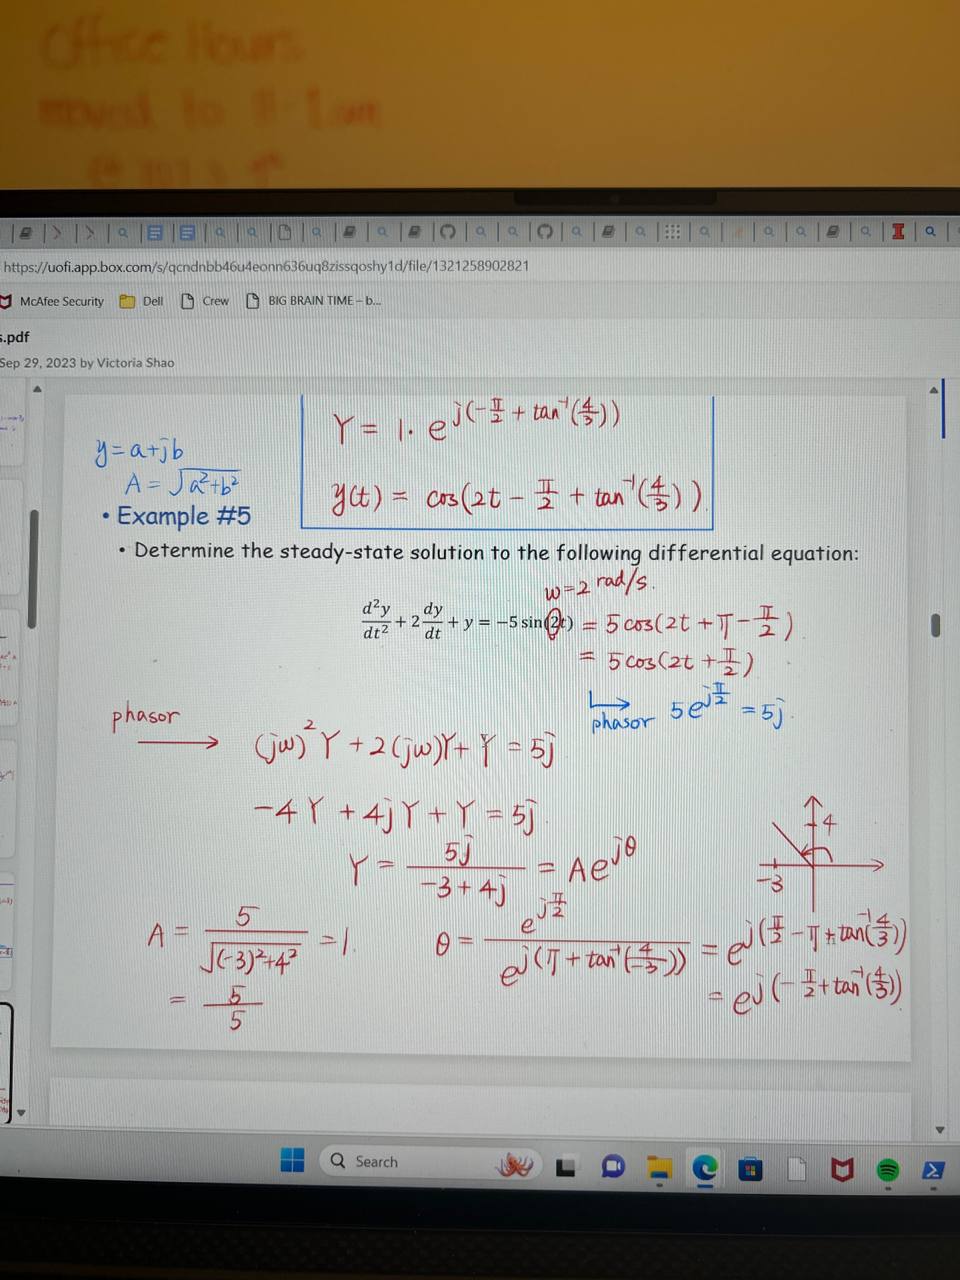 Office Hours
moved to
https://uofi.app.box.com/s/qcndnbb46u4eonn636uq8zissqoshy1d/file/1321258902821
McAfee Security Dell Crew BIG BRAIN TIME – b...
s.pdf
Sep 29, 2023 by Victoria Shao
Y = 1. e^j(-π/2 + tan⁻¹(4/3))
y(t) = cos(2t - π/2 + tan⁻¹(4/3))
y=a+jb
A = √a²+b²
• Example #5
• Determine the steady-state solution to the following differential equation:
w=2 rad/s.
d²y/dt² + 2 dy/dt + y = −5 sin(2t) = 5 cos(2t + π - π/2)
= 5 cos(2t + π/2)
phasor 5e^jπ/2 = 5j
phasor → (jw)² Y + 2(jw)Y + Y = 5j
-4Y + 4jY + Y = 5j
Y = 5j/(-3+4j) = Ae^jθ
4
-3
A = 5/√(-3)²+4² = 1.
= 5/5
θ = e^jπ/2 / e^j(π + tan⁻¹(4/-3)) = e^j(π/2 - π + tan⁻¹(4/3))
= e^j(-π/2 + tan⁻¹(4/3))
Search